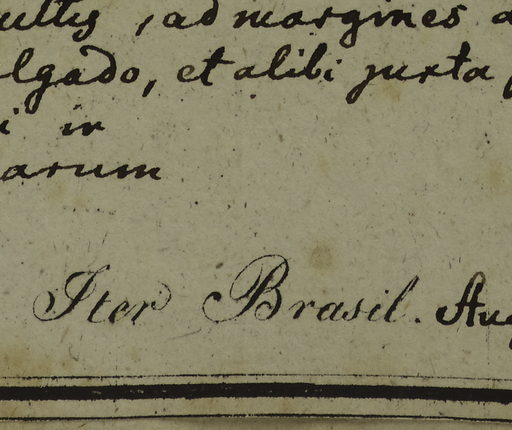 ultis, ad margines a
lgado, et alibi juxta
i in
arum
Iter Brasil. Aug